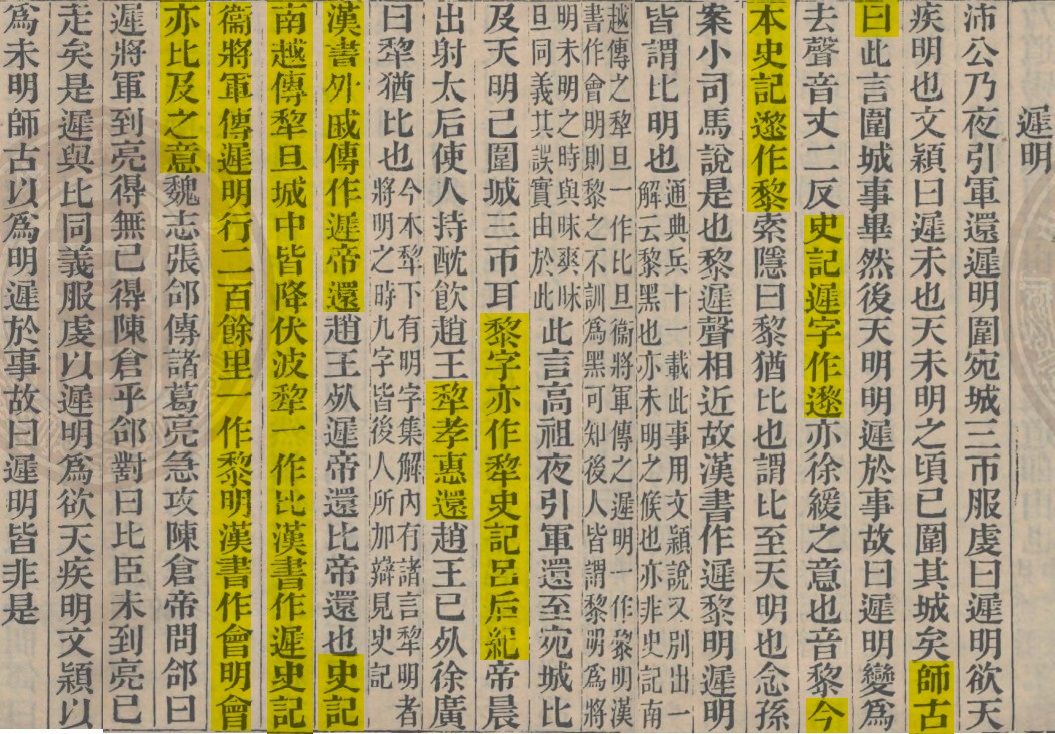 遲明
沛公乃夜引軍還遲明圍宛城三帀服虔曰遲明欲天
疾明也文穎曰遲未也天未明之頃已圍其城矣師古
曰此言圍城事畢然後天明明遲於事故曰遲明變爲
去聲音丈二反史記遲字作邌亦徐緩之意也音黎今
本史記邌作黎索隱曰黎猶比也謂比至天明也念孫
案小司馬說是也黎遲聲相近故漢書作遲黎明遲明
皆謂比明也通典兵十一載此事用文穎說又別出一
解云黎黑也亦未明之候也亦非史記南
越傳之犂旦一作比旦衞將軍傳之遲明一作黎明漢
書作會明則黎之不訓爲黑可知後人皆謂黎明爲將
明未明之時與昧爽昧
旦同義其誤實由於此此言高祖夜引軍還至宛城比
及天明已圍城三帀耳黎字亦作犂史記呂后紀帝晨
出射太后使人持酖飲趙王犂孝惠還趙王已𣦸徐廣
曰犂猶比也今本犂下有明字集解內有諸言犂明者
將明之時九字皆後人所加辯見史記
漢書外戚傳作遲帝還趙王𣦸遲帝還比帝還也史記
南越傳犂旦城中皆降伏波犂一作比漢書作遲史記
衞將軍傳遲明行二百餘里一作黎明漢書作會明會
亦比及之意魏志張郃傳諸葛亮急攻陳倉帝問郃曰
遲將軍到亮得無已得陳倉乎郃對曰比臣未到亮已
走矣是遲與比同義服虔以遲明爲欲天疾明文穎以
爲未明師古以爲明遲於事故曰遲明皆非是